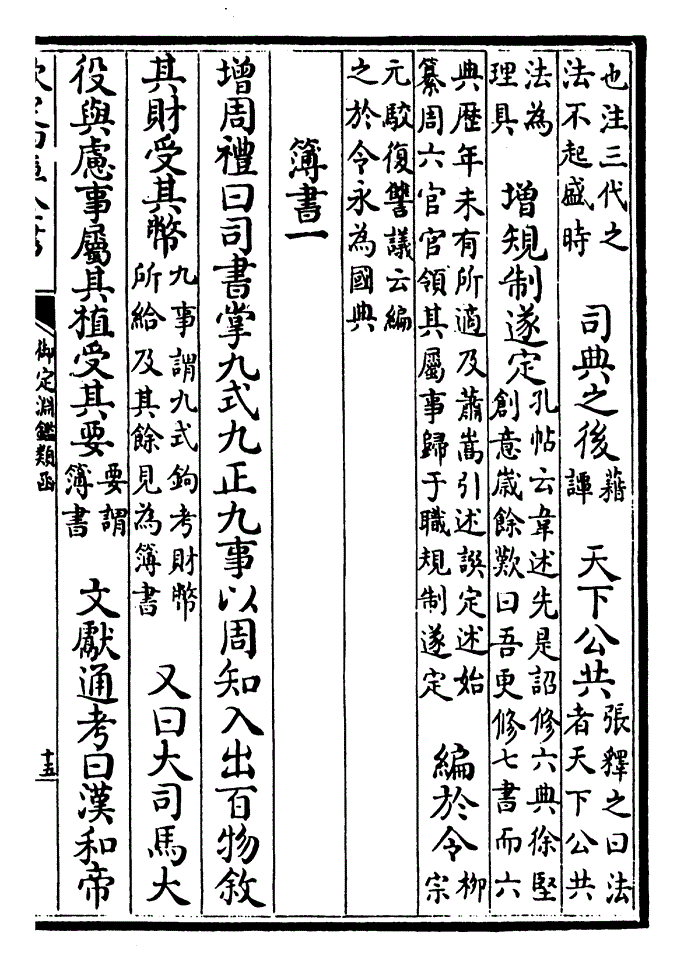 也注三代之法不起盛時 司典之後 藉譚 天下公共 張釋之曰法者天下公共
法為理具 增規制遂定 孔帖云韋述先是詔修六典徐堅創意歲餘歎曰吾更修七書而六
典歷年未有所適及蕭嵩引述譔定述始纂周六官官領其屬事歸于職規制遂定 編於令 柳宗
元駮復讐議云編之於令永為國典
簿書一
增周禮曰司書掌九式九正九事以周知入出百物敘
其財受其幣 九事謂九式鉤考財幣所給及其餘見為簿書 又曰大司馬大
役與慮事屬其植受其要 要謂簿書 文獻通考曰漢和帝
御定淵鑑類函 十五